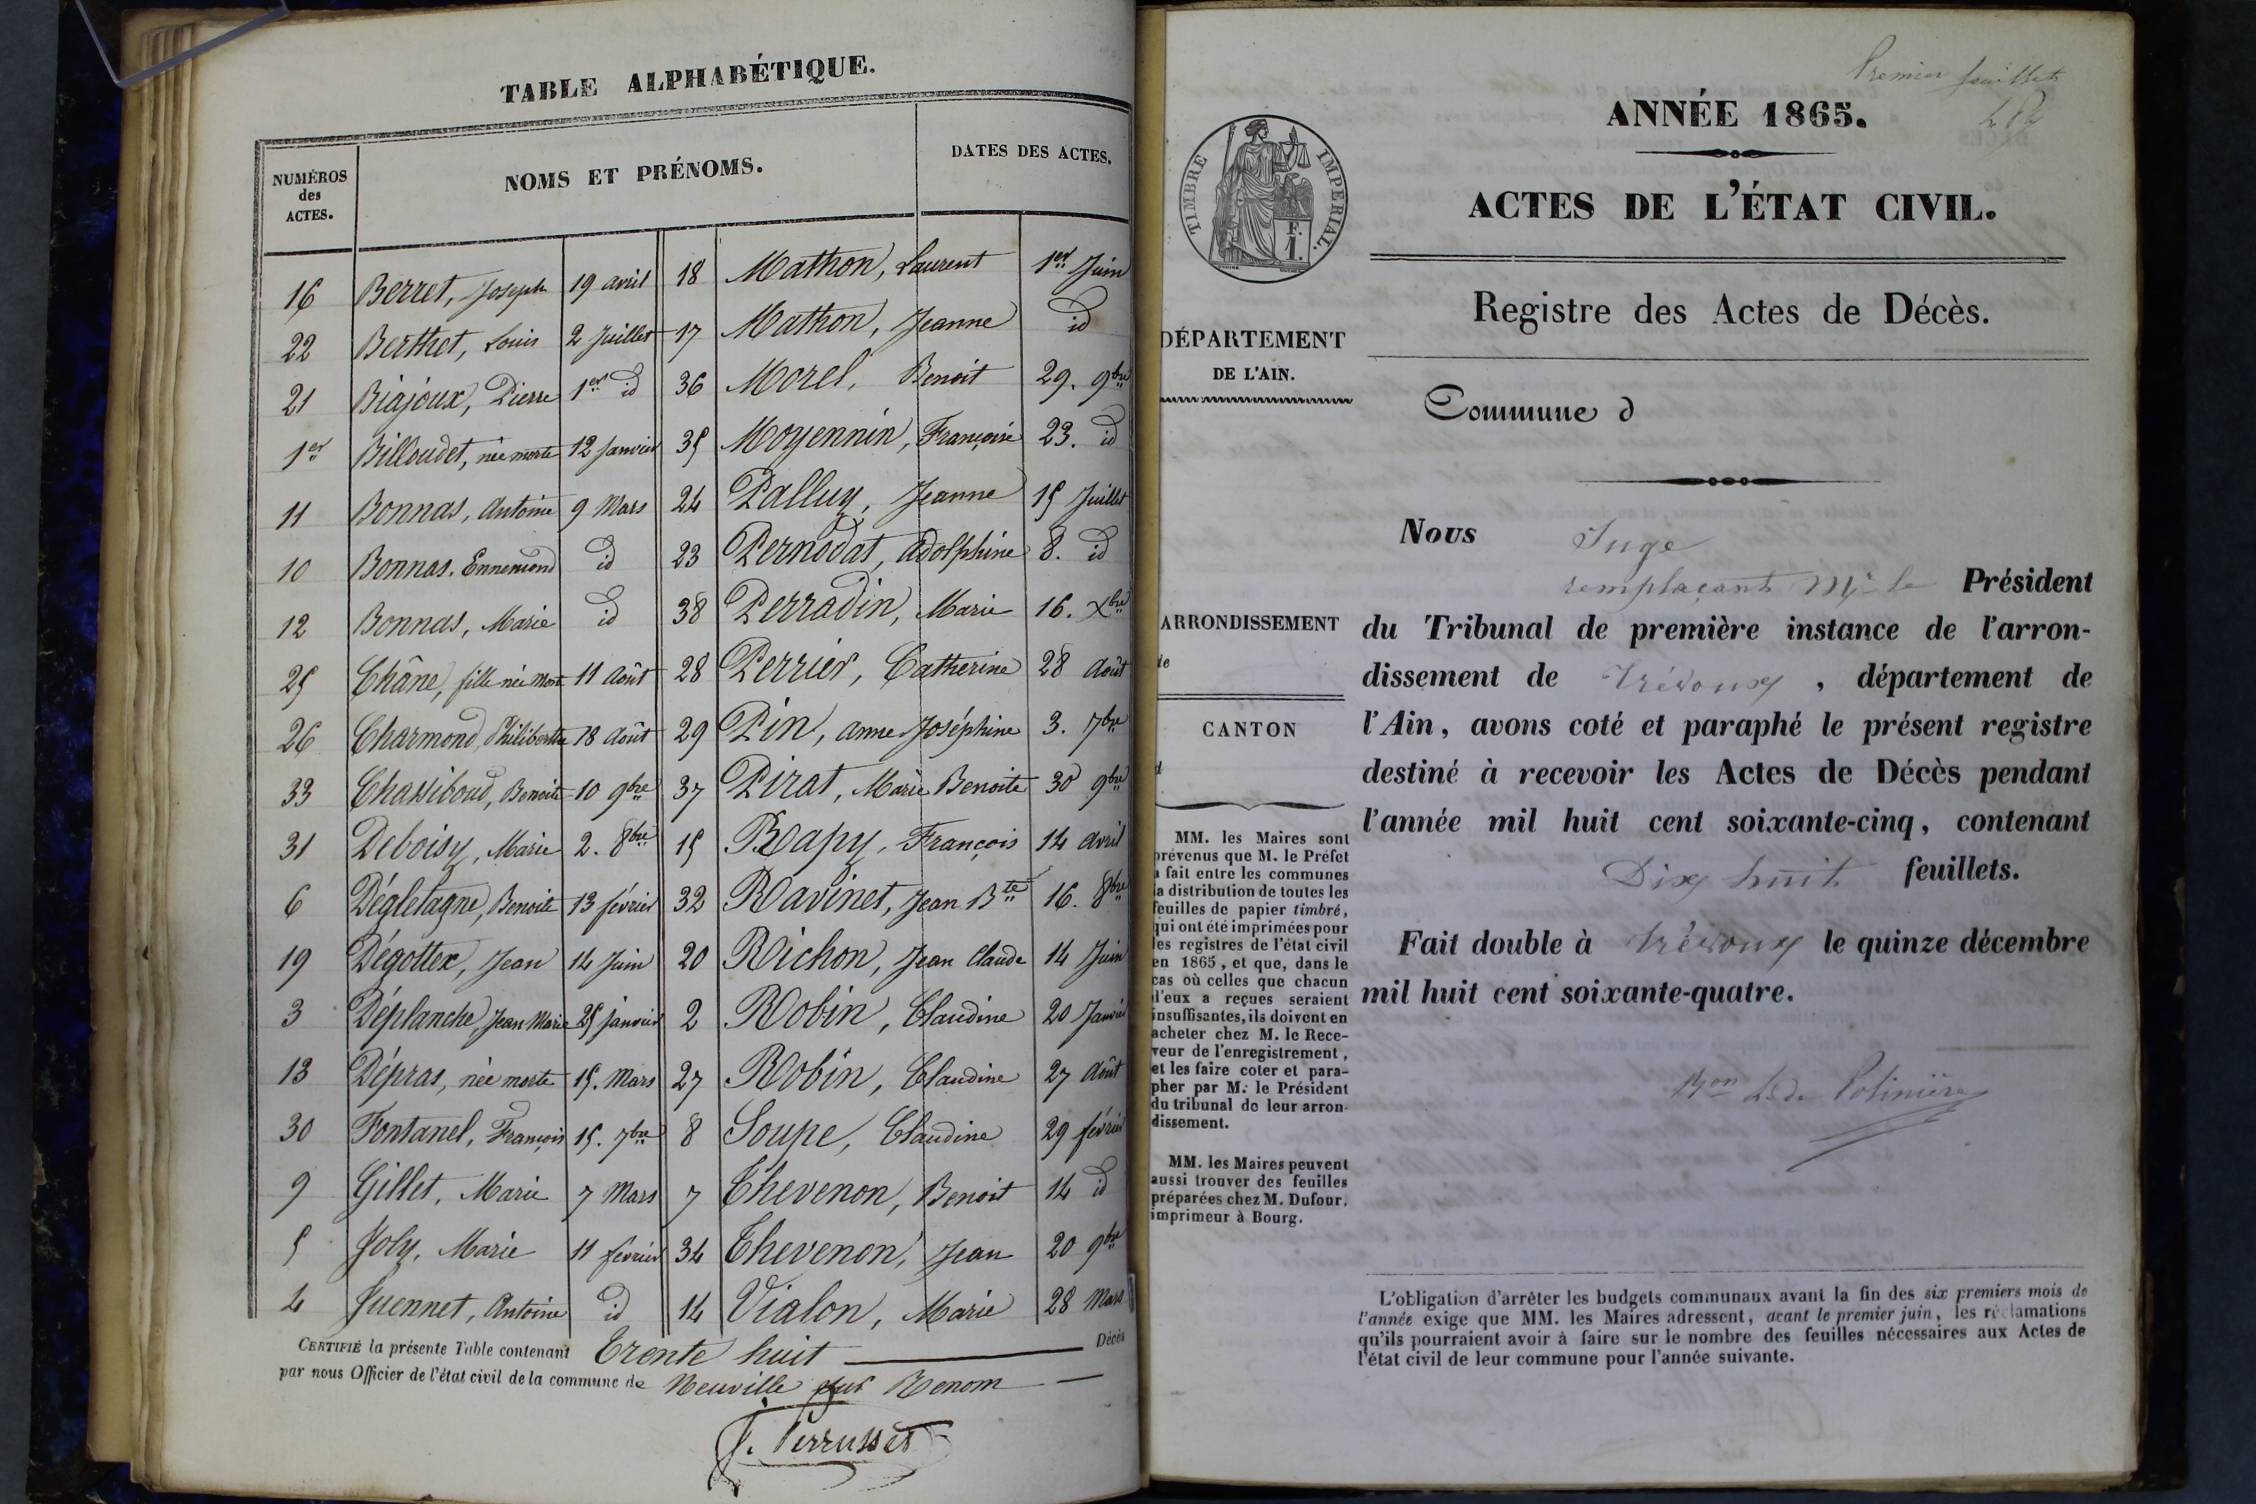 TABLE ALPHABÉTIQUE.
NUMÉROS des ACTES. NOMS ET PRÉNOMS. DATES DES ACTES.
16 Berret, Joseph 19 avril
22 Berthet, Louis 2 Juillet
21 Biajoux, Pierre 1er id
1er Billoudet, née morte 12 Janvier
11 Bonnas, Antoine 9 Mars
10 Bonnas, Ennemond id
12 Bonnas, Marie id
25 Châne, fille née mort 11 Août
26 Charmond, Philiberthe 18 Août
33 Chassiboud, Benoite 10 9bre
31 Deboisy, Marie 2. 8bre
6 Dégletagne, Benoite 13 février
19 Dégottex, Jean 14 Juin
3 Déplanche, Jean Marie 25 janvier
13 Dépras, née morte 15. Mars
30 Fontanel, François 15. 7bre
9 Gillet, Marie 7 Mars
5 Joly, Marie 11 février
4 Juennet, Antoine id
18 Mathon, Laurent 1er Juin
17 Mathon, Jeanne id
36 Morel, Benoit 29. 9bre
35 Moyennin, Françoise 23. id
24 Palluy, Jeanne 15 Juillet
23 Pernodat, Adolphine 8. id
38 Perradin, Marie 16. Xbre
28 Perrier, Catherine 28 Août
29 Pin, anne Joséphine 3. 7bre
37 Pirat, Marie Benoite 30 9bre
15 Rapy, François 14 avril
32 Ravinet, Jean Bte 16. 8bre
20 Richon, Jean Claude 14 Juin
2 Robin, Claudine 20 Janvier
27 Robin, Claudine 27 Août
8 Soupe, Claudine 29 février
7 Thevenon, Benoit 14 id
34 Thevenon, Jean 20 9bre
14 Vialon, Marie 28 Mars
CERTIFIÉ la présente Table contenant Trente huit Décès
par nous Officier de l'état civil de la commune de Neuville sur Renom
J. Perrusset
Premier feuillet
ANNÉE 1865.
ACTES DE L'ÉTAT CIVIL.
TIMBRE IMPÉRIAL.
F. 1.
Registre des Actes de Décès.
DÉPARTEMENT
DE L'AIN.
Commune d
ARRONDISSEMENT
de
CANTON
d
MM. les Maires sont
prévenus que M. le Préfet
a fait entre les communes
la distribution de toutes les
feuilles de papier timbré,
qui ont été imprimées pour
les registres de l'état civil
en 1865, et que, dans le
cas où celles que chacun
d'eux a reçues seraient
insuffisantes, ils doivent en
acheter chez M. le Rece-
veur de l'enregistrement,
et les faire coter et para-
pher par M. le Président
du tribunal de leur arron-
dissement.
MM. les Maires peuvent
aussi trouver des feuilles
préparées chez M. Dufour,
imprimeur à Bourg.
Nous Juge
remplaçant Mr le Président
du Tribunal de première instance de l'arron-
dissement de Trévoux, département de
l'Ain, avons coté et paraphé le présent registre
destiné à recevoir les Actes de Décès pendant
l'année mil huit cent soixante-cinq, contenant
Dix huit feuillets.
Fait double à Trévoux le quinze décembre
mil huit cent soixante-quatre.
Bon L. de Polinière
L'obligation d'arrêter les budgets communaux avant la fin des six premiers mois de
l'année exige que MM. les Maires adressent, avant le premier juin, les réclamations
qu'ils pourraient avoir à faire sur le nombre des feuilles nécessaires aux Actes de
l'état civil de leur commune pour l'année suivante.